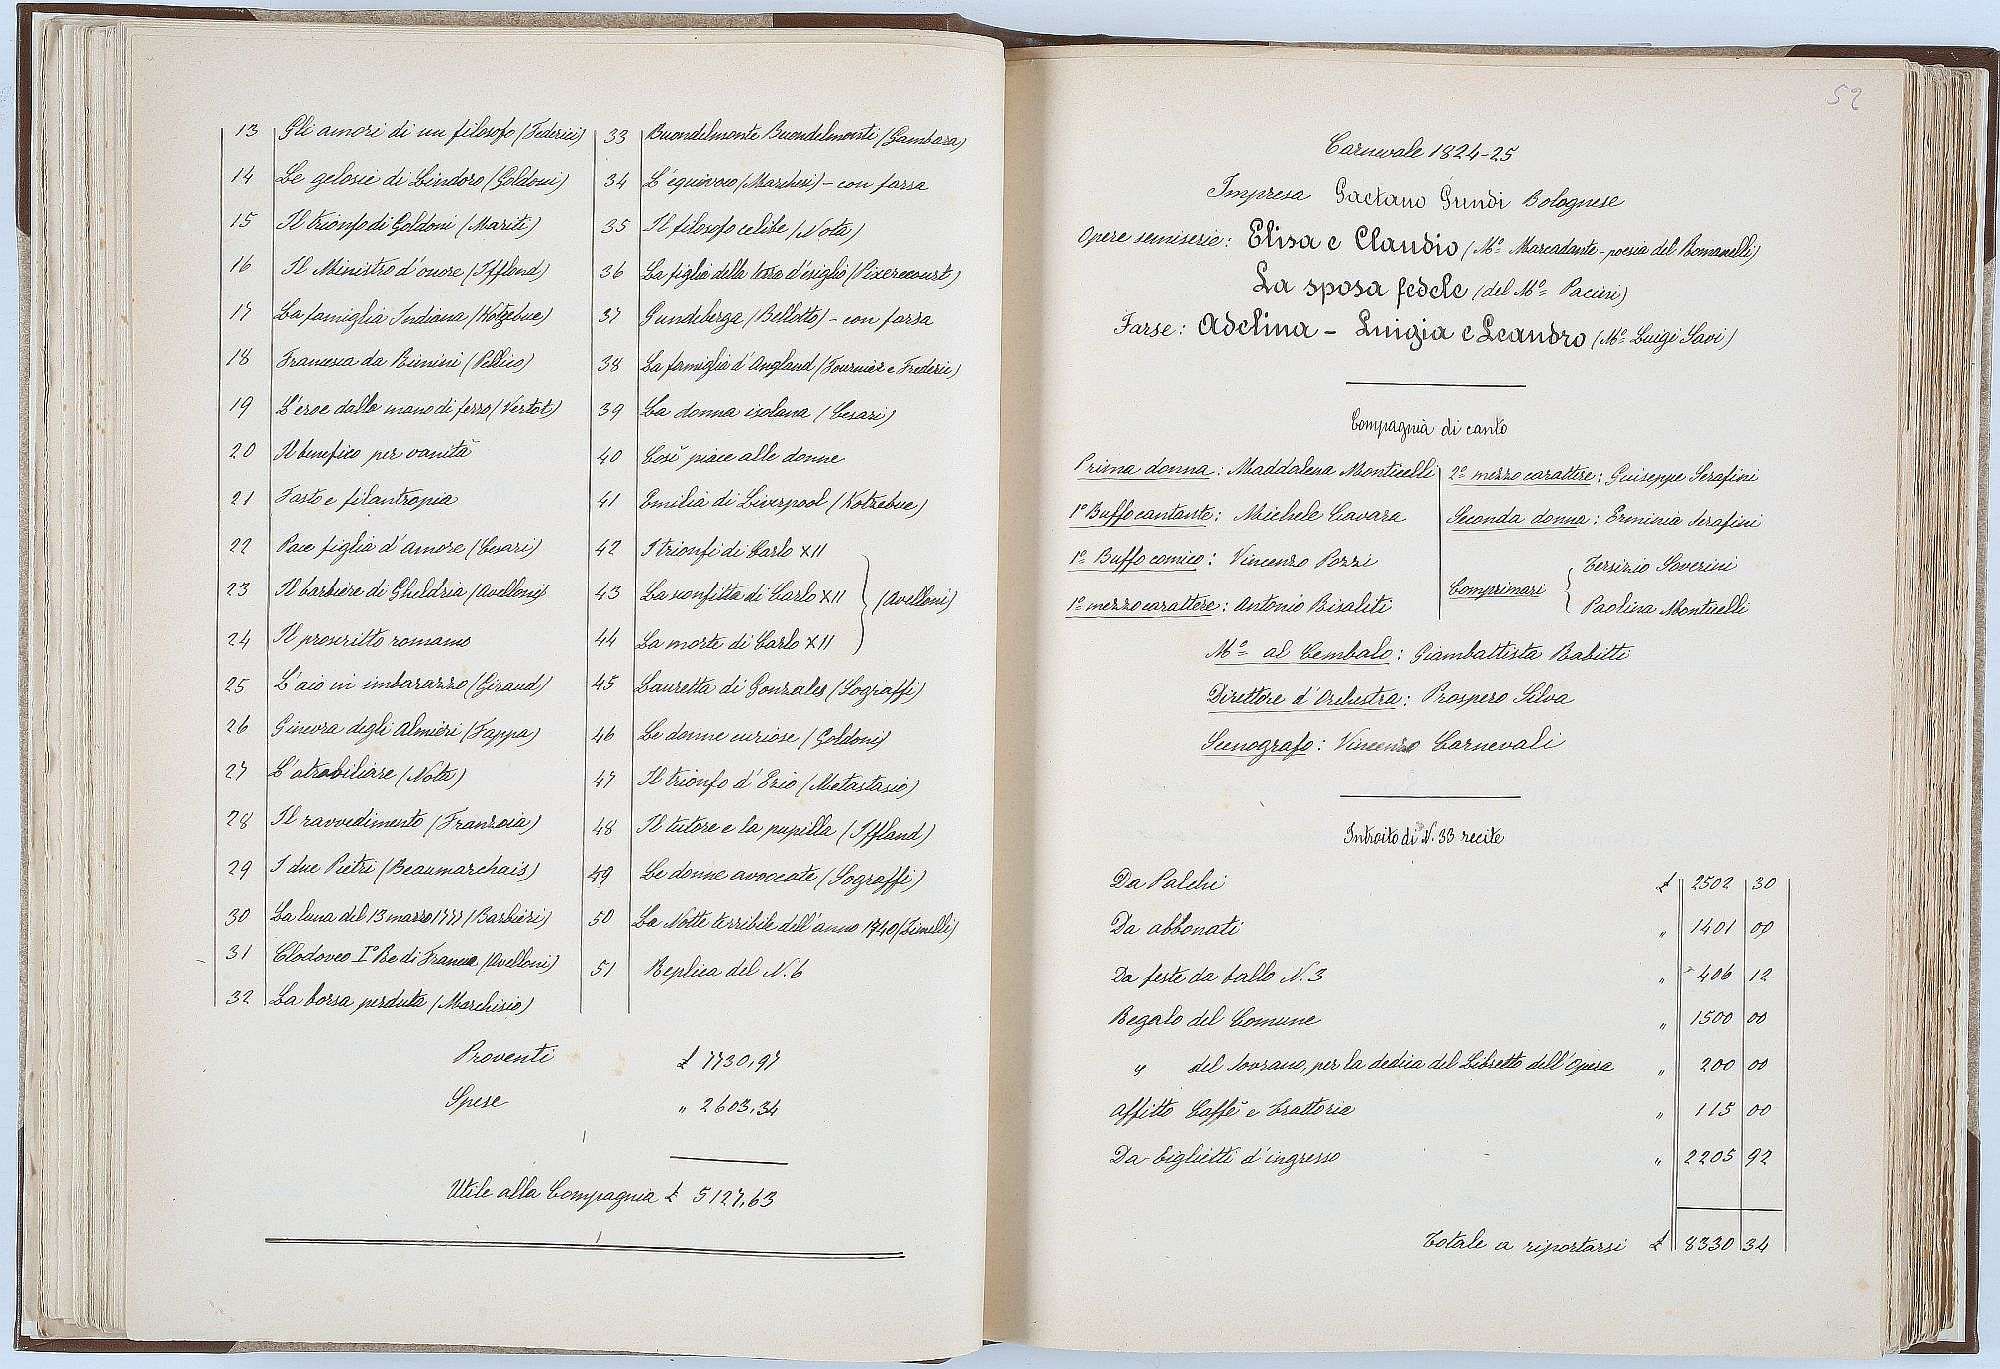 13 Gli amori di un filosofo (Federici)
14 Le gelosie di Lindoro (Goldoni)
15 Il trionfo di Goldoni (Mariti)
16 Il Ministro d'onore (Iffland)
17 La famiglia Indiana (Kotzebue)
18 Francesca da Rimini (Pellico)
19 L'eroe dalla mano di ferro (Vertot)
20 Il benefico per vanità
21 Fasto e filantropia
22 Pace figlia d'amore (Cesari)
23 Il barbiere di Gheldria (Avelloni)
24 Il proscritto romano
25 L'aio in imbarazzo (Giraud)
26 Ginevra degli Almieri (Fappa)
27 L'atrabiliare (Nota)
28 Il ravvedimento (Franzoia)
29 I due Pietri (Beaumarchais)
30 La luna del 13 marzo 1777 (Barbieri)
31 Clodoveo I° Re di Francia (Avelloni)
32 La borsa perduta (Marchisio)
33 Buondelmonte Buondelmonti (Gambara)
34 L'equivoco (Marchesi) - con farsa
35 Il filosofo celibe (Nota)
36 La figlia della terra d'esiglio (Pixerecourt)
37 Gundeberga (Bellotto) - con farsa
38 La famiglia d'Angland (Fournier e Frederic)
39 La donna isolana (Cesari)
40 Così piace alle donne
41 Emilia di Liverpool (Kotzebue)
42 I trionfi di Carlo XII
43 La sconfitta di Carlo XII (Avelloni)
44 La morte di Carlo XII
45 Lauretta di Gonzales (Sograffi)
46 Le donne curiose (Goldoni)
47 Il trionfo d'Ezio (Metastasio)
48 Il tutore e la pupilla (Iffland)
49 Le donne avvocate (Sograffi)
50 La Notte terribile dell'anno 1740 (Zinelli)
51 Replica del N. 6
Proventi £ 7730,97
Spese " 2603,34
Utile alla Compagnia £ 5127,63
52
Carnevale 1824-25
Impresa Gaetano Grundi Bolognese
Opere semiserie: Elisa e Claudio (M° Marcadante - poesia del Romanelli)
La sposa fedele (del M° Pacini)
Farse: Adelina - Luigia e Leandro (M° Luigi Savi)
Compagnia di canto
Prima donna: Maddalena Monticelli
1° Buffo cantante: Michele Cavara
1° Buffo comico: Vincenzo Pozzi
1° mezzo carattere: Antonio Bisaliti
2° mezzo carattere: Giuseppe Serafini
Seconda donna: Erminia Serafini
Comprimari Tersizio Soverini
Paolina Monticelli
M° al Cembalo: Giambattista Rabitti
Direttore d'Orchestra: Prospero Silva
Scenografo: Vincenzo Carnevali
Introito di N. 33 recite
Da Palchi £ 2502 30
Da abbonati " 1401 00
Da feste da ballo N. 3 " 406 12
Regalo del Comune " 1500 00
" del Sovrano, per la dedica del Libretto dell'Opera " 200 00
Affitto Caffè e Trattoria " 115 00
Da biglietti d'ingresso " 2205 92
Totale a riportarsi £ 8330 34